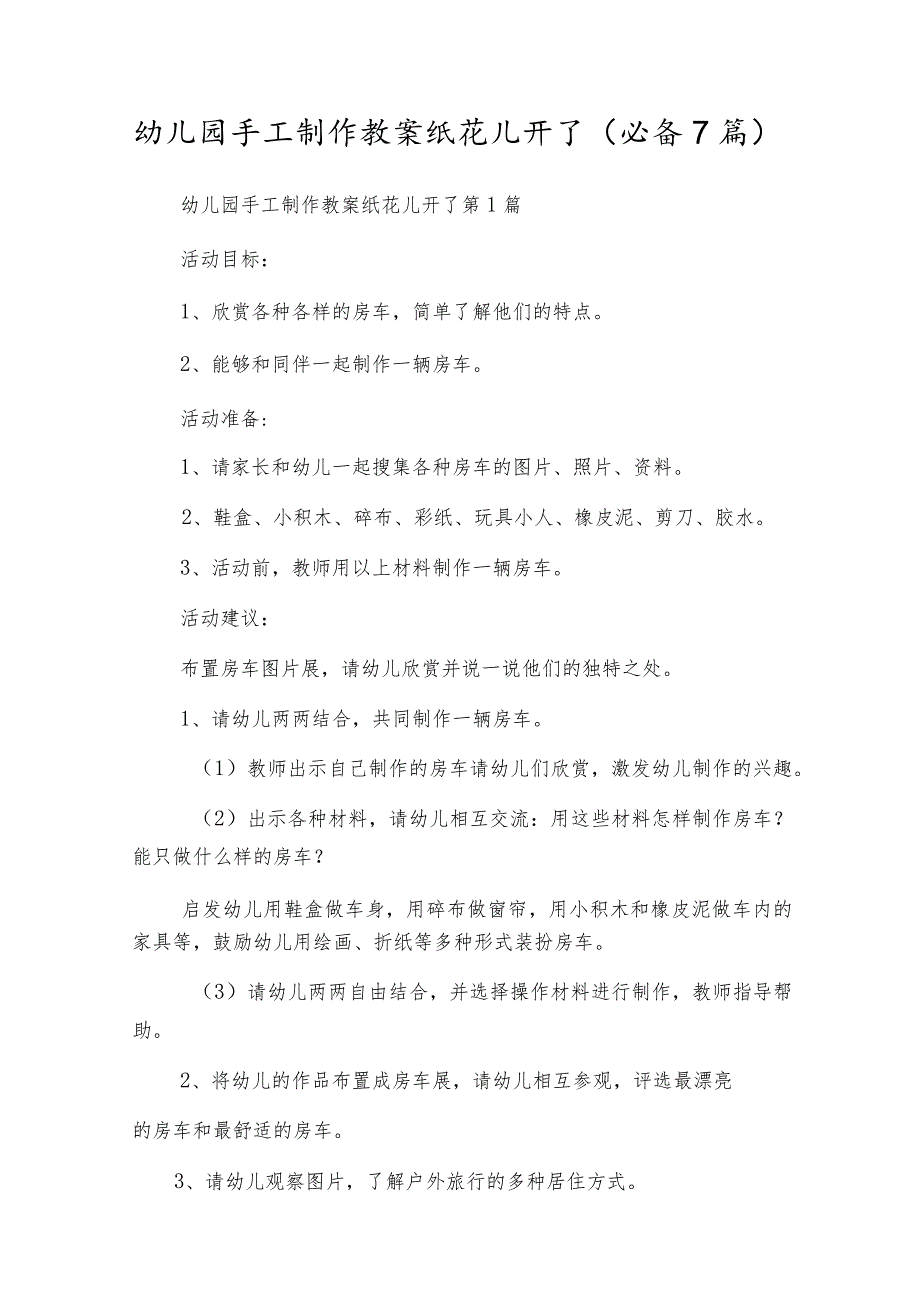 幼儿园手工制作教案纸花儿开了（必备7篇）
幼儿园手工制作教案纸花儿开了第1篇
活动目标：
1、欣赏各种各样的房车，简单了解他们的特点。
2、能够和同伴一起制作一辆房车。
活动准备：
1、请家长和幼儿一起搜集各种房车的图片、照片、资料。
2、鞋盒、小积木、碎布、彩纸、玩具小人、橡皮泥、剪刀、胶水。
3、活动前，教师用以上材料制作一辆房车。
活动建议：
布置房车图片展，请幼儿欣赏并说一说他们的独特之处。
1、请幼儿两两结合，共同制作一辆房车。
（1）教师出示自己制作的房车请幼儿们欣赏，激发幼儿制作的兴趣。
（2）出示各种材料，请幼儿相互交流：用这些材料怎样制作房车？
能只做什么样的房车？
启发幼儿用鞋盒做车身，用碎布做窗帘，用小积木和橡皮泥做车内的
家具等，鼓励幼儿用绘画、折纸等多种形式装扮房车。
（3）请幼儿两两自由结合，并选择操作材料进行制作，教师指导帮
助。
2、将幼儿的作品布置成房车展，请幼儿相互参观，评选最漂亮
的房车和最舒适的房车。
3、请幼儿观察图片，了解户外旅行的多种居住方式。